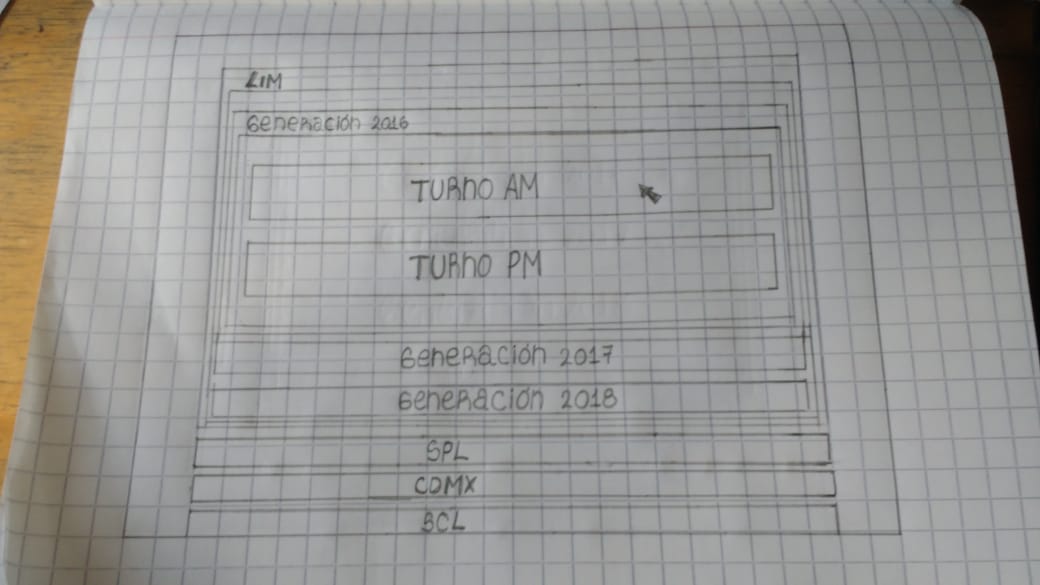 LIM
Generación 2016
TURNO AM
TURNO PM
Generación 2017
Generación 2018
SPL
CDMX
BCL